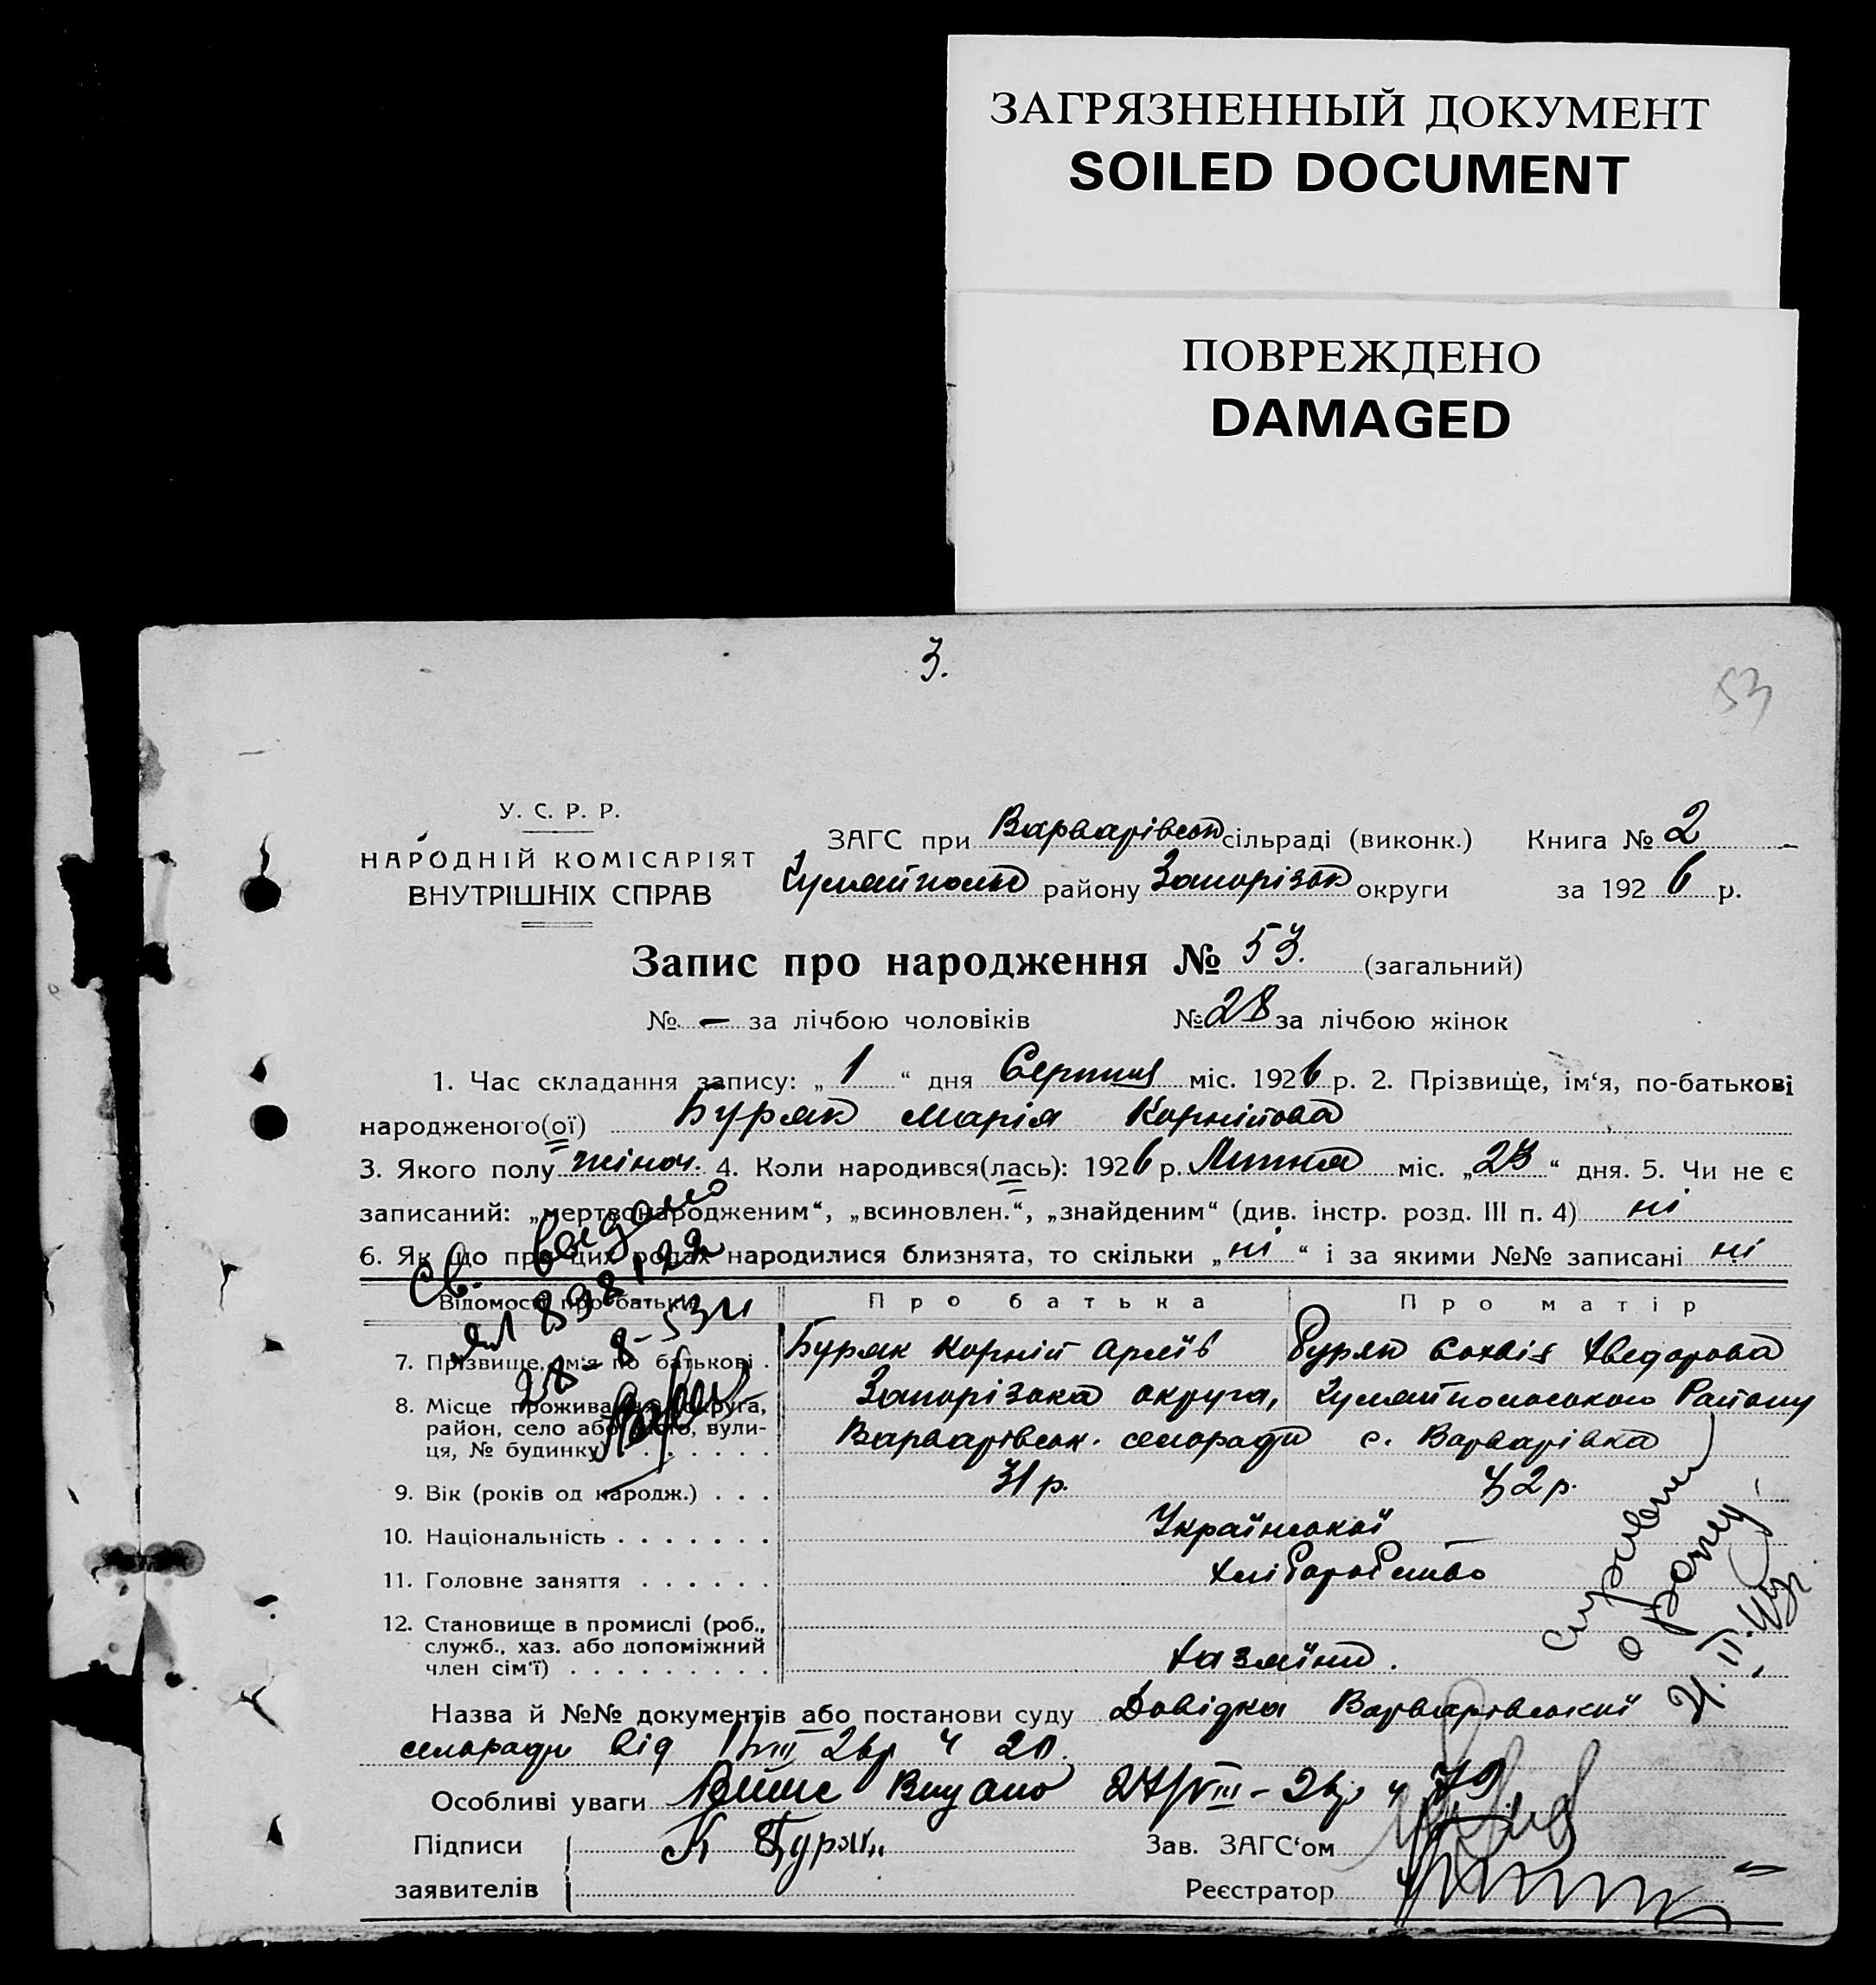 ЗАГРЯЗНЕННЫЙ ДОКУМЕНТ
SOILED DOCUMENT
ПОВРЕЖДЕНО
DAMAGED
3.
53
У. С. Р. Р.
НАРОДНІЙ КОМІСАРІЯТ
ВНУТРІШНІХ СПРАВ
ЗАГС при Варварівськ сільраді (виконк.) Книга № 2
району Запорізьк округи за 1926 р.
Запис про народження № 53. (загальний)
№ — за лічбою чоловіків № 28 за лічбою жінок
1. Час складання запису: „ 1 “ дня Серпня міс. 1926 р. 2. Прізвище, ім‘я, по-батькові
народженого(ої) Буряк Марія Корніїова
3. Якого полу жіноч. 4. Коли народився(лась): 1926 р. Липня міс. „23“ дня. 5. Чи не є
записаний: „мертвонародженим“, „всиновлен.“, „знайденим“ (див. інстр. розд. III п. 4) ні
6. Як що при цих родах народилися близнята, то скільки „ні“ і за якими №№ записані ні
Св. видано
28-8-53
Відомості про батьків Про батька Про матір
7. Прізвище, ім‘я по батькові . Буряк Корній Буряк Софія Хведорова
8. Місце проживання (округа, Запорізька округа, Району
район, село або місто, вули- Варварівськ. сельради с. Варварівка
ця, № будинку)
9. Вік (років од народж.) . . . 31 р. 32 р.
10. Національність . . . . . . . Української
11. Головне заняття . . . . . . хліборобство
12. Становище в промислі (роб.,
служб., хаз. або допоміжний
член сім‘ї) . . . . . . . . . хазяїни.
Назва й №№ документів або постанови суду Довідка Варварівської
сельради від 1/VIII 26р ч 20.
Особливі уваги Видано 27/VIII – 26р ч 79
Підписи К Буряк
Зав. ЗАГС‘ом
заявителів
Реєстратор